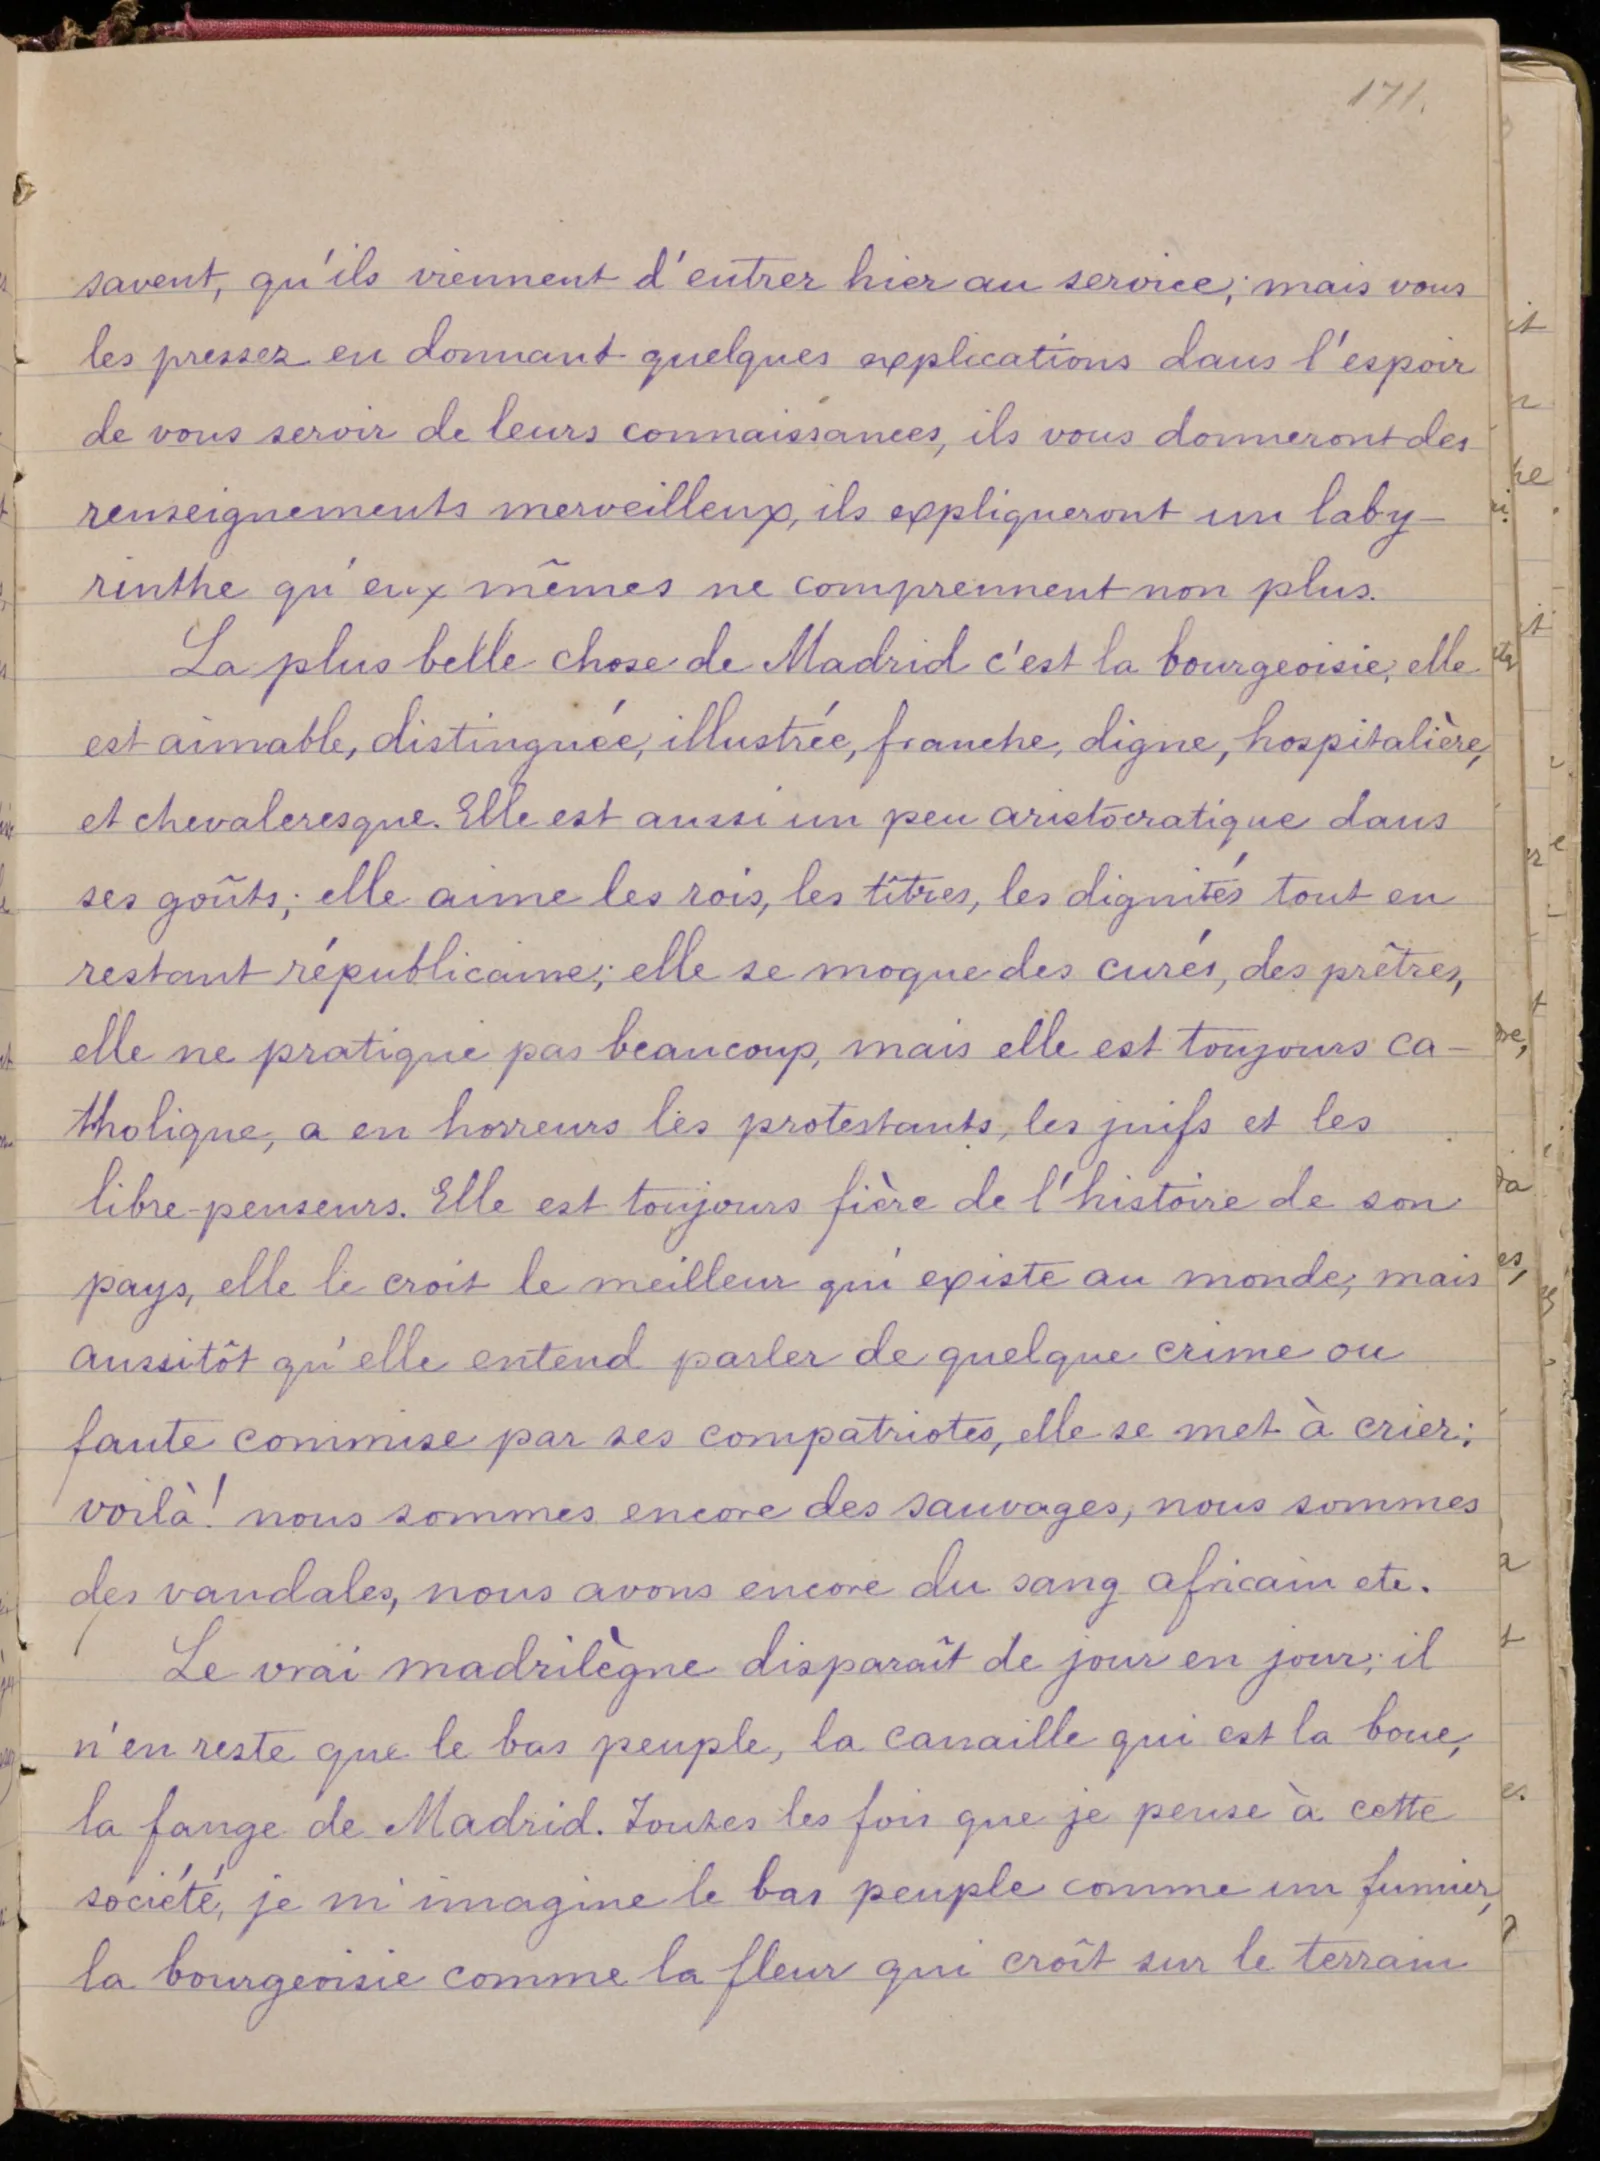 171.
savent, qu'ils viennent d'entrer hier au service; mais vous
les pressez en donnant quelques explications dans l'espoir
de vous servir de leurs connaissances, ils vous donneront des
renseignements merveilleux, ils expliqueront un laby-
rinthe qu'eux mêmes ne comprennent non plus.
La plus belle chose de Madrid c'est la bourgeoisie; elle
est aimable, distinguée, illustrée, franche, digne, hospitalière,
et chevaleresque. Elle est aussi un peu aristocratique dans
ses goûts; elle aime les rois, les titres, les dignités tout en
restant républicaine; elle se moque des curés, des prêtres,
elle ne pratique pas beaucoup, mais elle est toujours ca-
tholique, a en horreurs les protestants, les juifs et les
libre-penseurs. Elle est toujours fière de l'histoire de son
pays, elle le croit le meilleur qui existe au monde; mais
aussitôt qu'elle entend parler de quelque crime ou
faute commise par ses compatriotes, elle se met à crier:
voilà! nous sommes encore des sauvages, nous sommes
des vandales, nous avons encore du sang africain etc.
Le vrai madrilègne disparaît de jour en jour; il
n'en reste que le bas peuple, la canaille qui est la boue,
la fange de Madrid. Toutes les fois que je pense à cette
société, je m'imagine le bas peuple comme un fumier,
la bourgeoisie comme la fleur qui croît sur le terrain